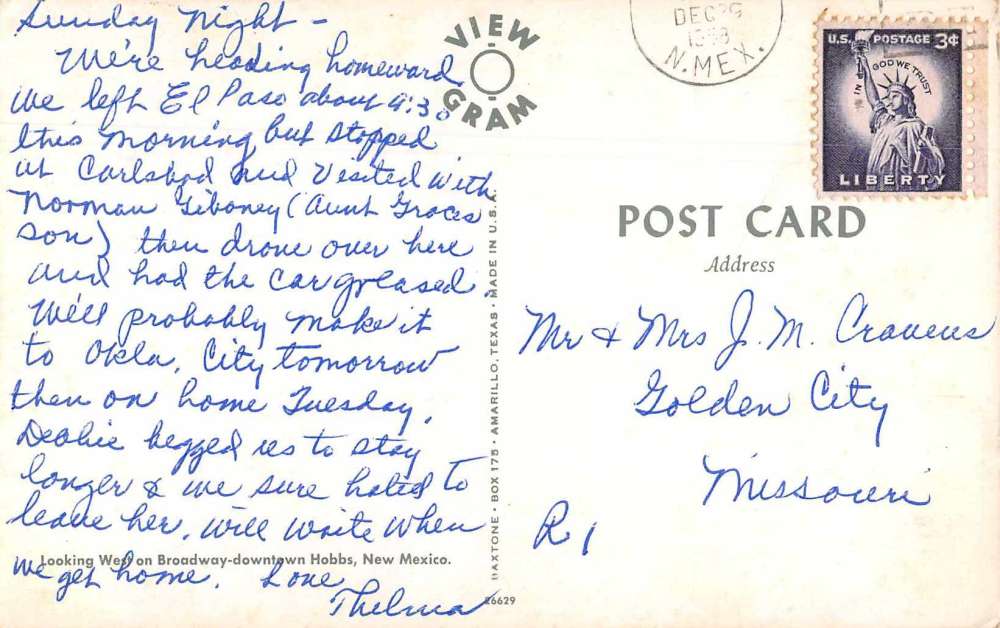 Sunday Night -
We're heading homeward,
we left El Paso about 9:30
this morning but stopped
at Carlsbad and visited with
Norman Giboney (Aunt Graces
son) then drove over here
and had the car greased.
We'll probably make it
to Okla. City tomorrow
then on home Tuesday.
Debbie begged us to stay
longer & we sure hated to
leave her. Will write when
we get home. Love
Thelma
Looking West on Broadway-downtown Hobbs, New Mexico.
VIEW
GRAM
BAXTONE · BOX 175 · AMARILLO, TEXAS · MADE IN U.S.A.
26629
DEC 29
N. MEX.
U.S. POSTAGE 3¢
IN GOD WE TRUST
LIBERTY
POST CARD
Address
Mr & Mrs J. M. Cravens
Golden City
Missouri
R 1